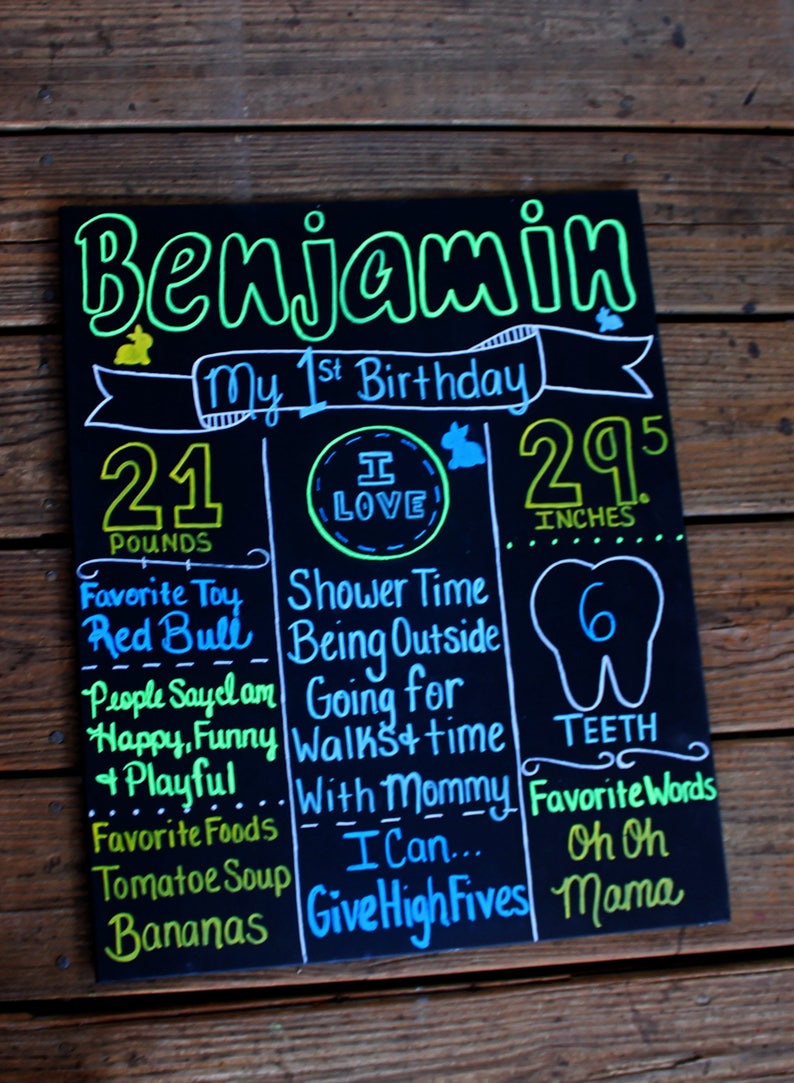 Benjamin
My 1st Birthday
21
POUNDS
Favorite Toy
Red Bull
People Say I am
Happy, Funny
& Playful
Favorite Foods
Tomatoe Soup
Bananas
I
LOVE
Shower Time
Being Outside
Going for
Walks & time
With Mommy
I Can...
Give High Fives
29.5
INCHES
6
TEETH
Favorite Words
Oh Oh
Mama